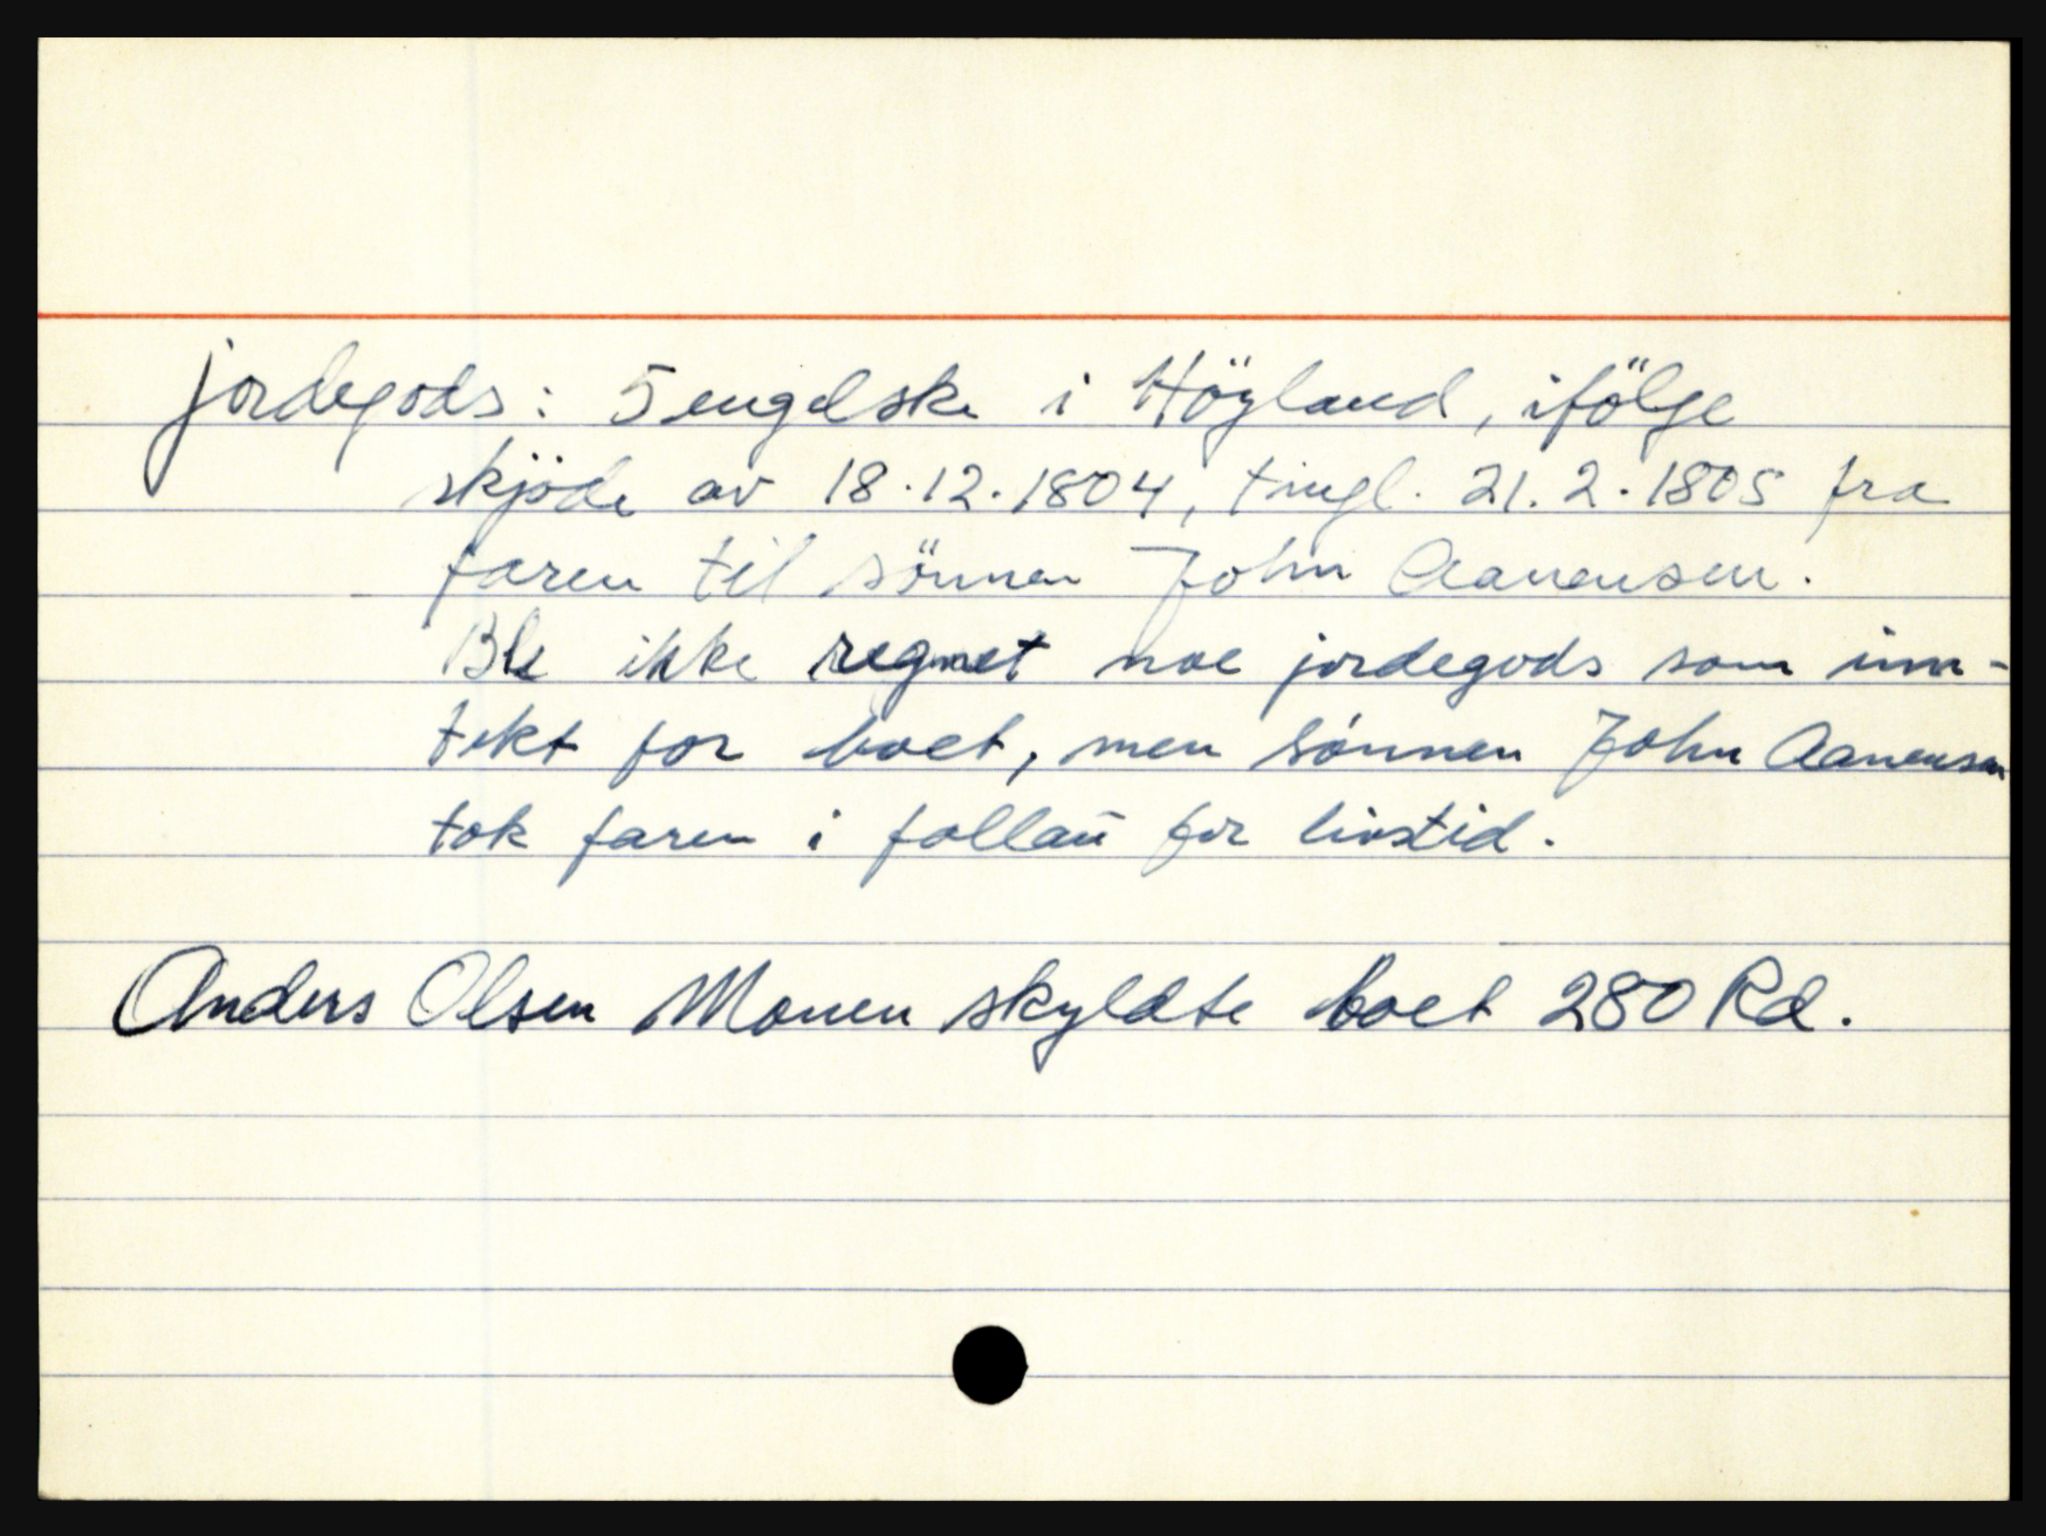 jordegods: 5 engelske i Höyland, ifölge
skjöde av 18.12.1804, tingl. 21.2.1805 fra
faren til sönnen John Aanensen.
Ble ikke regnet noe jordegods som inn-
tekt for boet, men sönnen John Aanensen
tok faren i follaū for livstid.
Anders Olsen Monen skyldte boet 280 Rd.